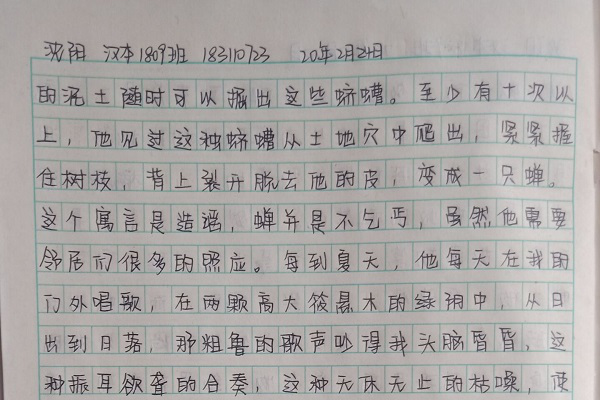 沈阳 汉本1809班 183110723 20年2月24日
的泥土随时可以掘出这些蛴螬。至少有十次以
上，他见过这种蛴螬从土地穴中爬出，紧紧握
住树枝，背上裂开脱去他的皮，变成一只蝉。
这个寓言是造谣，蝉并是不乞丐，虽然他需要
邻居们很多的照应。每到夏天，他每天在我的
门外唱歌，在两颗高大筱悬木的绿阴中，从日
出到日落，那粗鲁的歌声吵得我头脑昏昏，这
种振耳欲聋的合奏，这种无休无止的枯噪，使